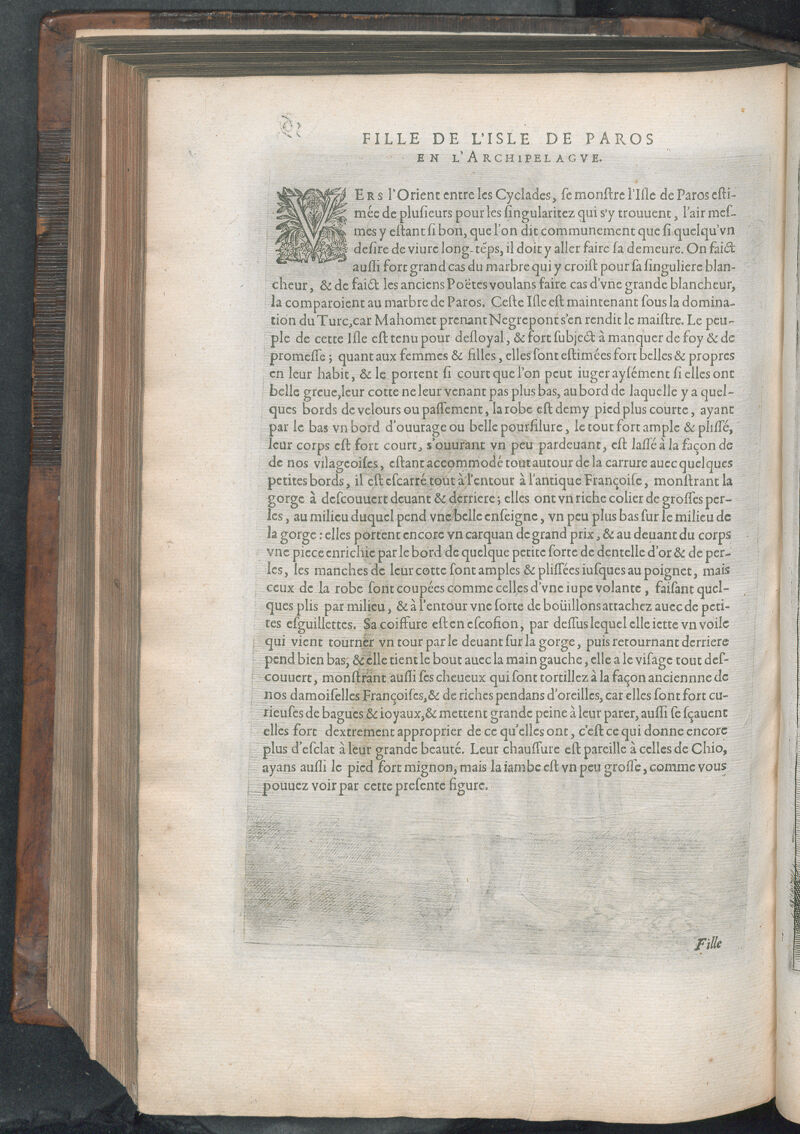 FILLE DE L'ISLE DE PAROS
EN L'ARCHIPELAGVE.
VERS l'Orient entre les Cyclades, se monstre l'Isle de Paros esti-
mée de plusieurs pour les singularitez qui s'y trouuent, l'air mes-
mes y estant si bon, que l'on dit communement que si quelqu'vn
desire de viure long-tẽps, il doit y aller faire sa demeure. On faict
aussi fort grand cas du marbre qui y croist pour sa singuliere blan-
cheur, & de faict les anciens Poëtes voulans faire cas d'vne grande blancheur,
la comparoient au marbre de Paros. Ceste Isle est maintenant sous la domina-
tion du Turc, car Mahomet prenant Negrepont s'en rendit le maistre. Le peu-
ple de cette Isle est tenu pour desloyal, & fort subject à manquer de foy & de
promesse; quant aux femmes & filles, elles sont estimées fort belles & propres
en leur habit, & le portent si court que l'on peut iuger aysément si elles ont
belle greue, leur cotte ne leur venant pas plus bas, au bord de laquelle y a quel-
ques bords de velours ou passement, la robe est demy pied plus courte, ayant
par le bas vn bord d'ouurage ou belle pourfilure, le tout fort ample & plissé,
leur corps est fort court, s'ouurant vn peu pardeuant, est lassé à la façon de
de nos vilageoises, estant accommodé tout autour de la carrure auec quelques
petites bords, il est escarré tout à l'entour à l'antique Françoise, monstrant la
gorge à descouuert deuant & derriere; elles ont vn riche colier de grosses per-
les, au milieu duquel pend vne belle enseigne, vn peu plus bas sur le milieu de
la gorge: elles portent encore vn carquan de grand prix, & au deuant du corps
vne piece enrichie par le bord de quelque petite sorte de dentelle d'or & de per-
les, les manches de leur cotte sont amples & plissées iusques au poignet, mais
ceux de la robe sont coupées comme celles d'vne iupe volante, faisant quel-
ques plis par milieu, & à l'entour vne sorte de boüillons attachez auec de peti-
tes esguillettes. Sa coiffure est en escofion, par dessus lequel elle iette vn voile
qui vient tourner vn tour par le deuant sur la gorge, puis retournant derriere
pend bien bas, & elle tient le bout auec la main gauche, elle a le visage tout des-
couuert, monstrant aussi ses cheueux qui sont tortillez à la façon anciennne de
nos damoiselles Françoises, & de riches pendans d'oreilles, car elles sont fort cu-
rieuses de bagues & ioyaux, & mettent grande peine à leur parer, aussi se sçauent
elles fort dextrement approprier de ce qu'elles ont, c'est ce qui donne encore
plus d'esclat à leur grande beauté. Leur chaussure est pareille à celles de Chio,
ayans aussi le pied fort mignon, mais la iambe est vn peu grosse, comme vous
pouuez voir par cette presente figure.
Fille